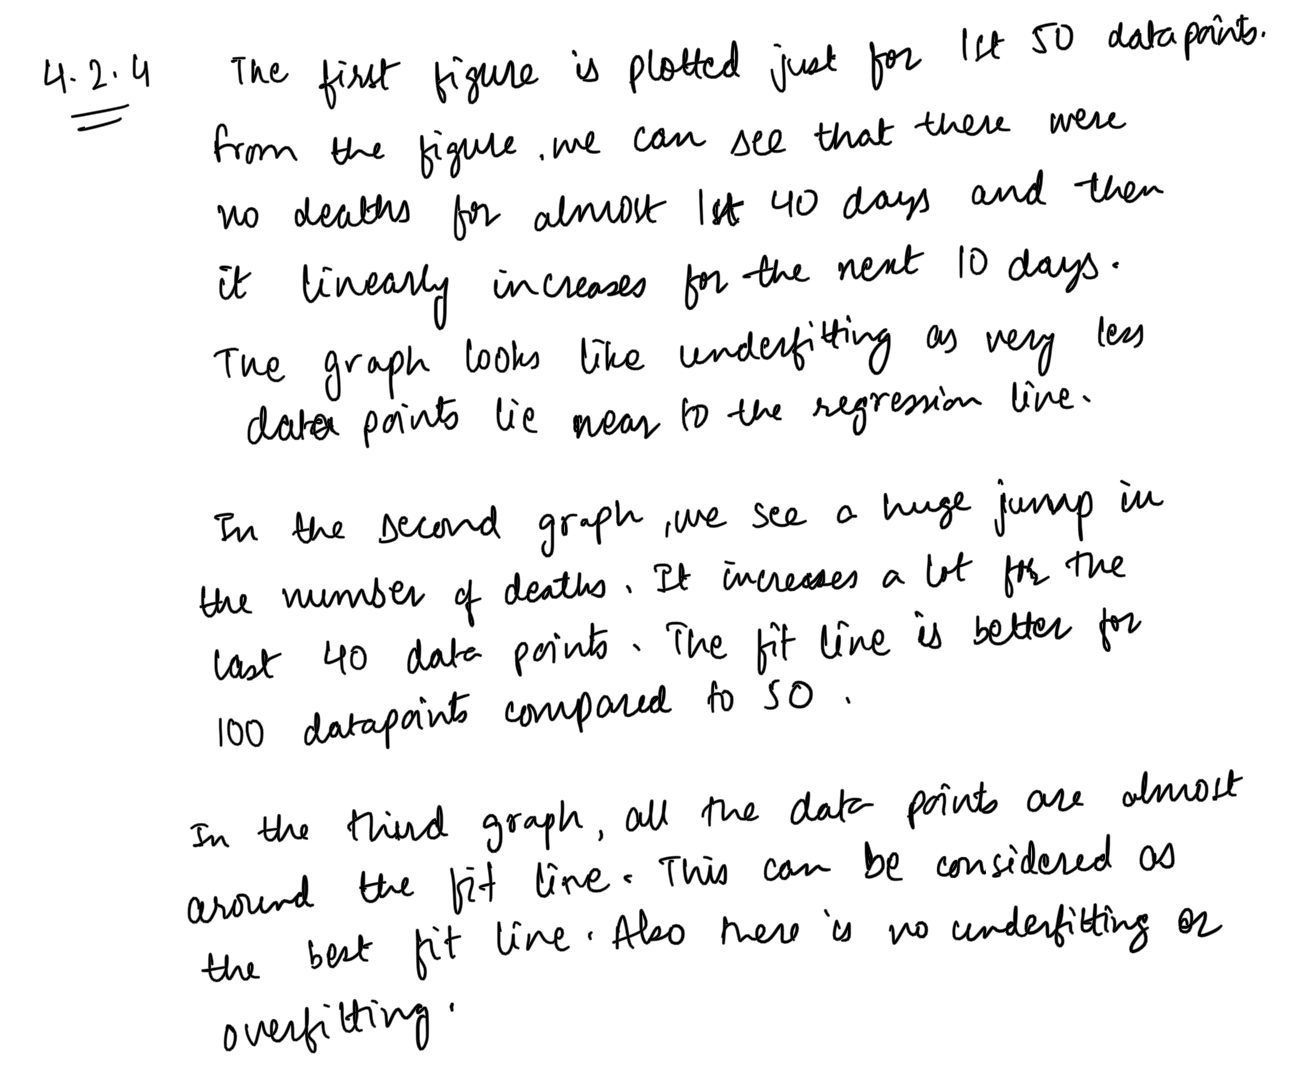 4.2.4 The first figure is plotted just for 1st 50 datapoints.
from the figure, we can see that there were
no deaths for almost 1st 40 days and then
it linearly increases for the next 10 days.
The graph looks like underfitting as very less
data points lie near to the regression line.
In the second graph, we see a huge jump in
the number of deaths. It increases a lot for the
last 40 data points. The fit line is better for
100 datapoints compared to 50.
In the third graph, all the data points are almost
around the fit line. This can be considered as
the best fit line. Also there is no underfitting or
overfitting.